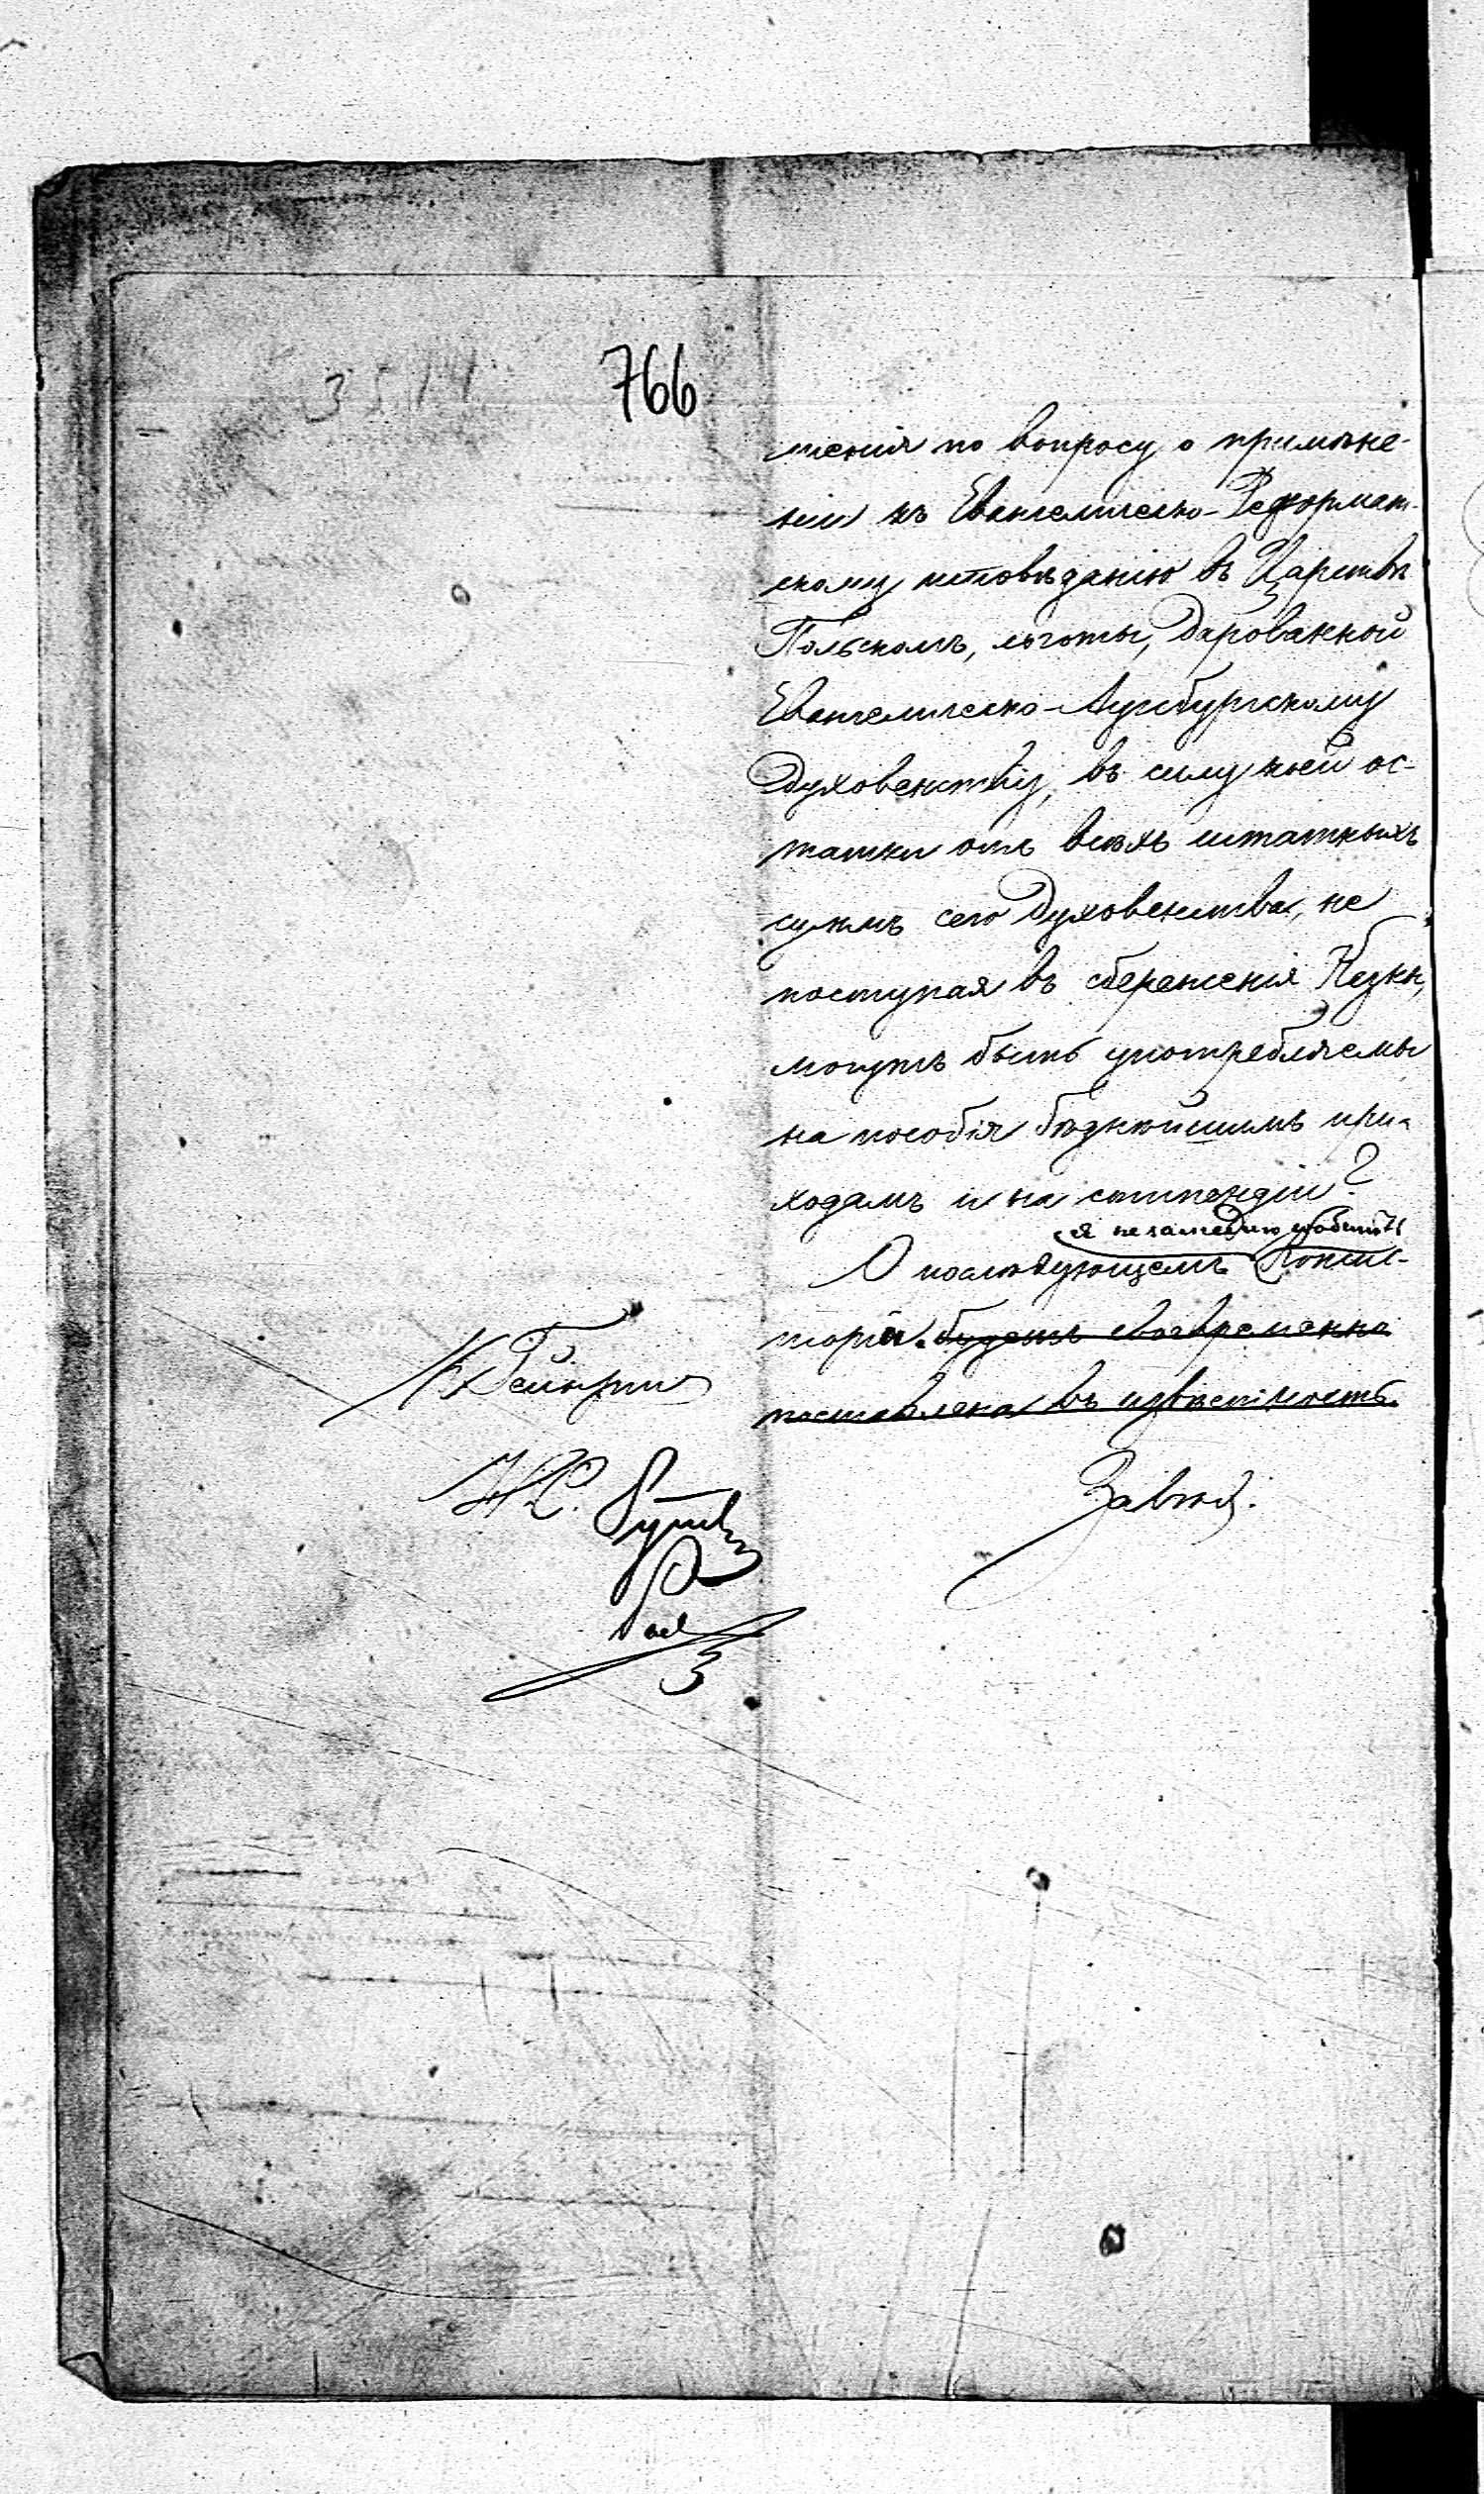 3514
766
шенія по вопросу о примѣне-
ніи къ Евангелическо-Реформат-
скому исповѣданію въ Царствѣ
Польскомъ, льготы, дарованной
Евангелическо-Аугсбургскому
Духовенству, въ силу коей ос-
татки отъ всѣхъ штатныхъ
суммъ сего Духовенства, не
поступая въ сбереженія Казны,
могутъ быть употребляемы
на пособія бѣднѣйшимъ при-
ходамъ и на стипендіи?
я незамедлю сообщить
О послѣдующемъ Консис-
торіи. будетъ своевременно
поставлена въ извѣстность.
Завѣд.